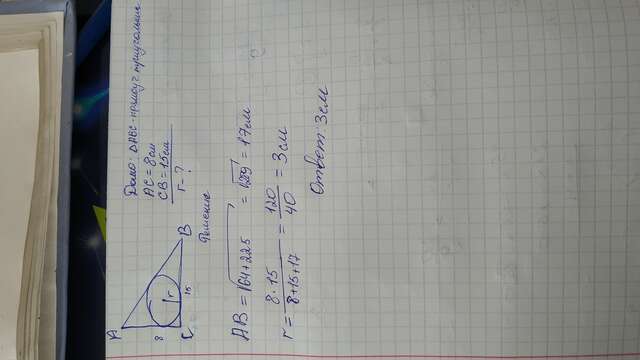 Дано: ΔABC-прямоуг треугольник
AC = 8см
CB = 15см
r - ?
A
B
C
8
15
r
Решение
AB = √64+225 = √289 = 17см
r = 8·15 / 8+15+17 = 120 / 40 = 3см
Ответ: 3см